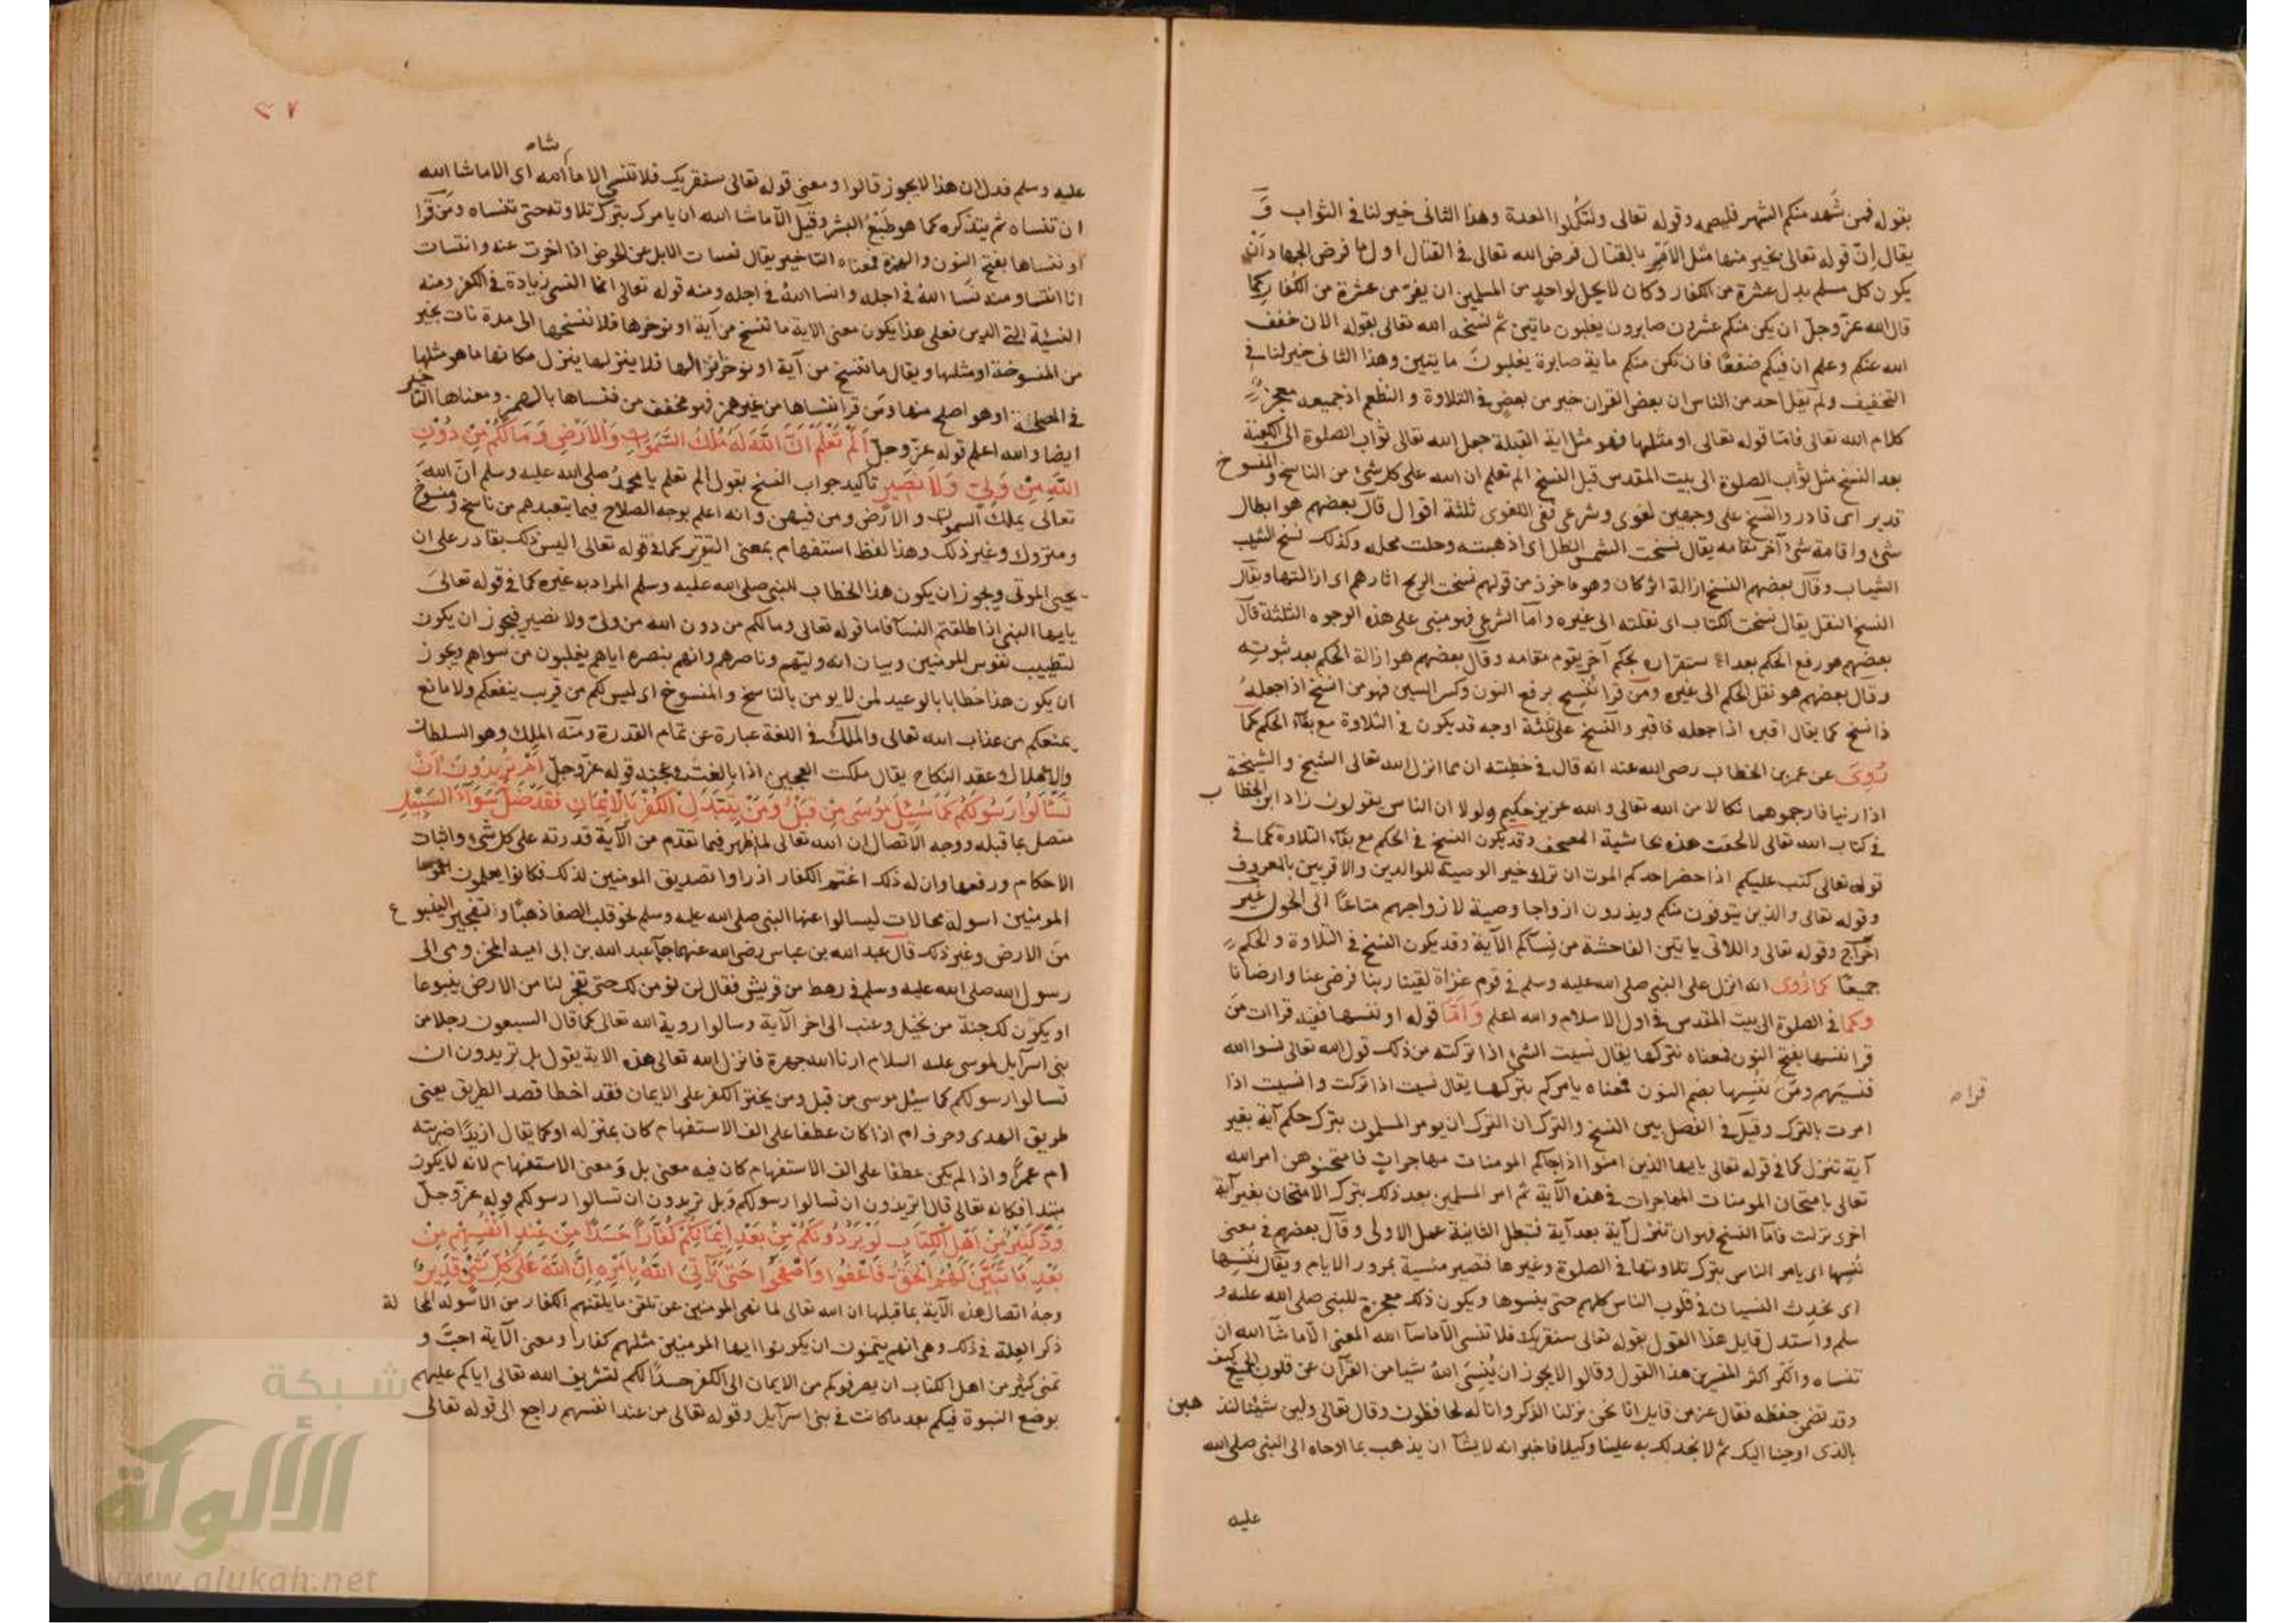 بقوله فمن شهد منكم الشهر فليصمه وقوله تعالى ولتكملوا العدة وهذا الثانى خير لنا فى الثواب وَ
يقال اِنّ قوله تعالى بخير منها مثل الامر بالقتال فرض الله تعالى فى القتال اول ما فرض الجهاد ان
يكون كل مسلم بدل عشرة من الكفار وكان لا يحل لواحدٍ من المسلمين ان يفرّ من عشرة من الكفار كما
قال الله عزّ وجلّ ان يكن منكم عشرون صابرون يغلبون مايتين ثم نسخه الله تعالى بقوله الان خفف
الله عنكم وعلم ان فيكم ضعفًا فان تكن منكم ماية صابرة يغلبون مايتين وهذا الثانى خير لنا فى
التخفيف ولم يقل احد من الناس ان بعض القران خير من بعضٍ فى التلاوة والنظم اذ جميعه معجز
كلام الله تعالى فامّا قوله تعالى او مثلها فهو مثل اية القبلة جعل الله تعالى ثواب الصلوة الى الكعبة
بعد النسخ مثل ثواب الصلوة الى بيت المقدس قبل النسخ الم تعلم ان الله على كل شئ من الناسخ والمنسوخ
قدير اى قادر والنسخ على وجهين لغوى وشرعى ففى اللغوى ثلثة اقوال قال بعضهم هو ابطال
شئ واقامة شئ آخر مقامه يقال نسخت الشمس الظل اى اذهبته وحلت محله وكذلك نسخ الشيب
الشباب وقال بعضهم النسخ ازالة اثر كان وهو ماخوذ من قولهم نسخت الريح اثارهم اى ازالتها ويقال
النسخ النقل يقال نسخت الكتاب اى نقلته الى غيره وامّا الشرعى فهو مبنى على هذه الوجوه الثلثة قال
بعضهم هو رفع الحكم بعد استقراره بحكم آخر يقوم مقامه وقال بعضهم هو ازالة الحكم بعد ثبوته
وقال بعضهم هو نقل الحكم الى غيره ومن قرا نُنسِخ برفع النون وكسر السين فهو من انسخ اذا جعله
ذا نسخ كما يقال اقبره اذا جعله ذا قبر والنسخ على ثلثة اوجه قد يكون فى التلاوة مع بقاء الحكم كما
رُوىَ عن عمر بن الخطاب رضى الله عنه انه قال فى خطبته ان مما انزل الله تعالى الشيخ والشيخة
اذا زنيا فارجموهما نكالا من الله تعالى والله عزيز حكيم ولولا ان الناس يقولون زاد ابن الخطاب
فى كتاب الله تعالى لالحقت هذه بحاشية المصحف وقد يكون النسخ فى الحكم مع بقاء التلاوة كما فى
قوله تعالى كتب عليكم اذا حضر احدكم الموت ان ترك خير الوصية للوالدين والاقربين بالمعروف
وقوله تعالى والذين يتوفون منكم ويذرون ازواجا وصية لازواجهم متاعًا الى الحول غير
اخراج وقوله تعالى واللاتى ياتين الفاحشة من نسآئكم الآية وقد يكون النسخ فى التلاوة والحكم
جميعًا كما رُوى انه انزل على النبى صلى الله عليه وسلم فى قوم غزاة لقينا ربنا فرضى عنا وارضانا
وكما فى الصلوة الى بيت المقدس فى اول الاسلام والله اعلم وَامّا قوله او ننسها ففيه قراات من
قرا ننسها بفتح النون فمعناه نتركها يقال نسيت الشئ اذا تركته من ذلك قول الله تعالى نسوا الله
فنسيهم ومن نُنسِها بضم النون فمعناه يامركم بتركها يقال نسيت اذا تركت وانسيت اذا
قراه
امرت بالترك وقيل فى الفصل بين النسخ والترك ان الترك ان يومر المسلمون بترك حكم آية بغير
آية تنزل كما فى قوله تعالى يايها الذين امنوا اذا جاكم المومنات مهاجراتٍ فامتحنوهن امر الله
تعالى بامتحان المومنات المهاجرات فى هذه الآية ثم امر المسلمين بعد ذلك بترك الامتحان بغير آية
اخرى نزلت فامّا النسخ فهو ان تنزل آية بعد آية فتبطل الثانية عمل الاولى وقال بعضهم فى معنى
نُنسِها اى يامر الناس بترك تلاوتها فى الصلوة وغيرها فتصير منسية بمرور الايام ويقال نُنسِها
اى نحدث النسيان فى قلوب الناس كلهم حتى ينسوها ويكون ذلك معجزة للنبى صلى الله عليه و
سلم واستدل قايل هذا القول بقوله تعالى سنقريك فلا تنسى الّا ما شآ الله المعنى الّا ما شآ الله ان
تنساه وانكر اكثر المفسرين هذا القول وقالوا لا يجوز ان يُنسِىَ اللهُ شيا من القرآن عن قلوب الجميع كيف
وقد تضمن حفظه فقال عز من قايل انا نحن نزلنا الذكر وانا له لحافظون وقال تعالى ولين شئنا لنذهبن
بالذى اوحينا اليك ثم لا تجد لك به علينا وكيلا فاخبر انه لا يشآ ان يذهب بما اوحاه الى النبى صلى الله
عليه
٣٧
شاه
عليه وسلم فدل ان هذا لا يجوز قالوا ومعنى قوله تعالى سنقريك فلا تنسى الا ما الله اى الا ما شا الله
ان تنساه ثم يتذكره كما هو طَبْعُ البشر وقيل الّا ما شا الله ان يامرك بترك تلاوته حتى تنساه ومن قرا
او ننساها بفتح النون والهمزة فمعناه التاخير يقال نسات الابل عن الحوض اذا اخرت عنه وانتسات
انا انتساو منه نسَا اللهُ فى اجله وانسا اللهُ فى اجله ومنه قوله تعالى انما النسى زيادة فى الكفر ومنه
النسئة التى الدين فعلى هذا يكون معنى الاية ما ننسخ من آية او نوخرها فلا ننسخها الى مدة نات بخير
من المنسوخة او مثلها ويقال ما ننسخ من آية او نوخر انزالها فلا ينزلها ينزل مكانها ما هو مثلها
فى المصلحة او هو اصلح منها ومن قرا ننساها من غير همز فهو مخفف من ننساها بالهمز ومعناها التاخير
ايضا والله اعلم قوله عزّ وجلّ اَلَمْ تَعْلَمْ اَنَّ اللّٰهَ لَهُ مُلْكُ السَّمٰوَاتِ وَالْاَرْضِ وَمَا لَكُمْ مِنْ دُوْنِ
اللّٰهِ مِنْ وَلِيٍّ وَلَا نَصِيْرٍ تاكيد جواب النسخ بقول الم تعلم يا محمدُ صلى الله عليه وسلم انّ اللهَ
تعالى يملك السموات والارض ومن فيهن وانه اعلم بوجه الصلاح فيما يتعبدهم من ناسخ ومنسوخ
ومتروك وغير ذلك وهذا لفظ استفهام بمعنى التقرير كما فى قوله تعالى اليس ذلك بقادر على ان
يحيى الموتى ويجوز ان يكون هذا الخطاب للنبى صلى الله عليه وسلم المراد به غيره كما فى قوله تعالىَ
يايها النبى اذا طلقتم النسآ فاما قوله تعالى وما لكم من دون الله من ولىّ ولا نصيرٍ فيجوز ان يكون
لتطييب نفوس للمومنين وبيان انه وليّهم وناصرهم وانهم بنصره اياهم يغلبون من سواهم ويجوز
ان يكون هذا خطابا بالوعيد لمن لا يومن بالناسخ والمنسوخ اى ليس لكم من قريب ينفعكم ولا مانع
يمنعكم من عذاب الله تعالى والملك فى اللغة عبارة عن تمام القدرة ومنه الملِك وهو السلطان
والاملاك عقد النكاح يقال ملكت العجين اذا بالغت فى عجنه قوله عزّ وجلّ اَمْ تُرِيْدُوْنَ اَنْ
تَسْأَلُوْا رَسُوْلَكُمْ كَمَا سُئِلَ مُوْسَى مِنْ قَبْلُ وَمَنْ يَتَبَدَّلِ الْكُفْرَ بِالْاِيْمَانِ فَقَدْ ضَلَّ سَوَآءَ السَّبِيْلِ
متصل بما قبله ووجه الاتصال ان الله تعالى لما اظهر فيما تقدّم من الآية قدرته على كل شئ واثبات
الاحكام ورفعها وان له ذلك اغتم الكفار اذ راوا تصديق المومنين لذلك فكانوا يعلمون
المومنين اسولة محالات ليسالوا عنها النبى صلى الله عليه وسلم نحو قلب الصفا ذهبًا وتفجير الينبوع
من الارض وغير ذلك قال عبد الله بن عباس رضى الله عنهما جآ عبد الله بن ابى اميه المخزومى الى
رسول الله صلى الله عليه وسلم فى رهط من قريش فقال لن نومن لك حتى تفجر لنا من الارض ينبوعا
او يكون لك جنة من نخيل وعنب الى اخر الآية وسالوا روية الله تعالى كما قال السبعون رجلا من
بنى اسرآيل لموسى عليه السلام ارنا الله جهرة فانزل الله تعالى هذه الاية يقول بل تريدون ان
تسالوا رسولكم كما سيُل موسى من قبل ومن يختر الكفر على الايمان فقد اخطا قصد الطريق يعنى
طريق الهدى وحرف ام اذا كان عطفا على الف الاستفهام كان بمنزلة او كما يقال ازيدًا ضربته
ام عمرًا واذا لم يكن عطفا على الف الاستفهام كان فيه معنى بل وَمعنى الاستفهام لانه لا يكون
مبتدا فكانه تعالى قال اتريدون ان تسالوا رسولكم وبل تريدون ان تسالوا رسولكم قوله عزّ وجلّ
وَدَّ كَثِيْرٌ مِنْ اَهْلِ الْكِتَابِ لَوْ يَرُدُّوْنَكُمْ مِنْ بَعْدِ اِيْمَانِكُمْ كُفَّارًا حَسَدًا مِنْ عِنْدِ اَنْفُسِهِمْ مِنْ
بَعْدِ مَا تَبَيَّنَ لَهُمُ الْحَقُّ فَاعْفُوْا وَاصْفَحُوْا حَتّٰى يَأْتِيَ اللّٰهُ بِاَمْرِهِ اِنَّ اللّٰهَ عَلٰى كُلِّ شَيْءٍ قَدِيْرٌ
وجهُ اتصال هذه الآية بما قبلها ان الله تعالى لما نهى المومنين عن تلقّن ما يلقنهم الكفار من الاسولة المحالة
ذكر العِلة فى ذلك وهى انهم يتمنون ان يكونوا ايها المومنين مثلهم كفارا ومعنى الآية احبّ و
تمنى كثير من اهل الكتاب ان يصرفوكم من الايمان الى الكفر حسدًا لكم لتشريف الله تعالى اياكم عليهم
بوضع النبوة فيكم بعد ما كانت فى بنى اسرآيل وقوله تعالى من عند انفسهم راجع الى قوله تعالى
شبكة
الألوكة
www.alukah.net